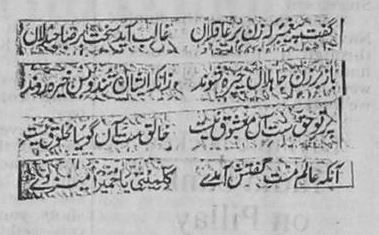 گفت پیغمبر که زن بر عاقلان غالب آید سخت بر صاحبدلان
باز بر زن جاهلان چیره شوند زانکه ایشان تند و بس تیره روند
پرتو حق است آن معشوق نیست خالق است آن گویا مخلوق نیست
آنکه عالم مست گفتش آمدے کلمینی یا حمیرا میزدے
on Pillay